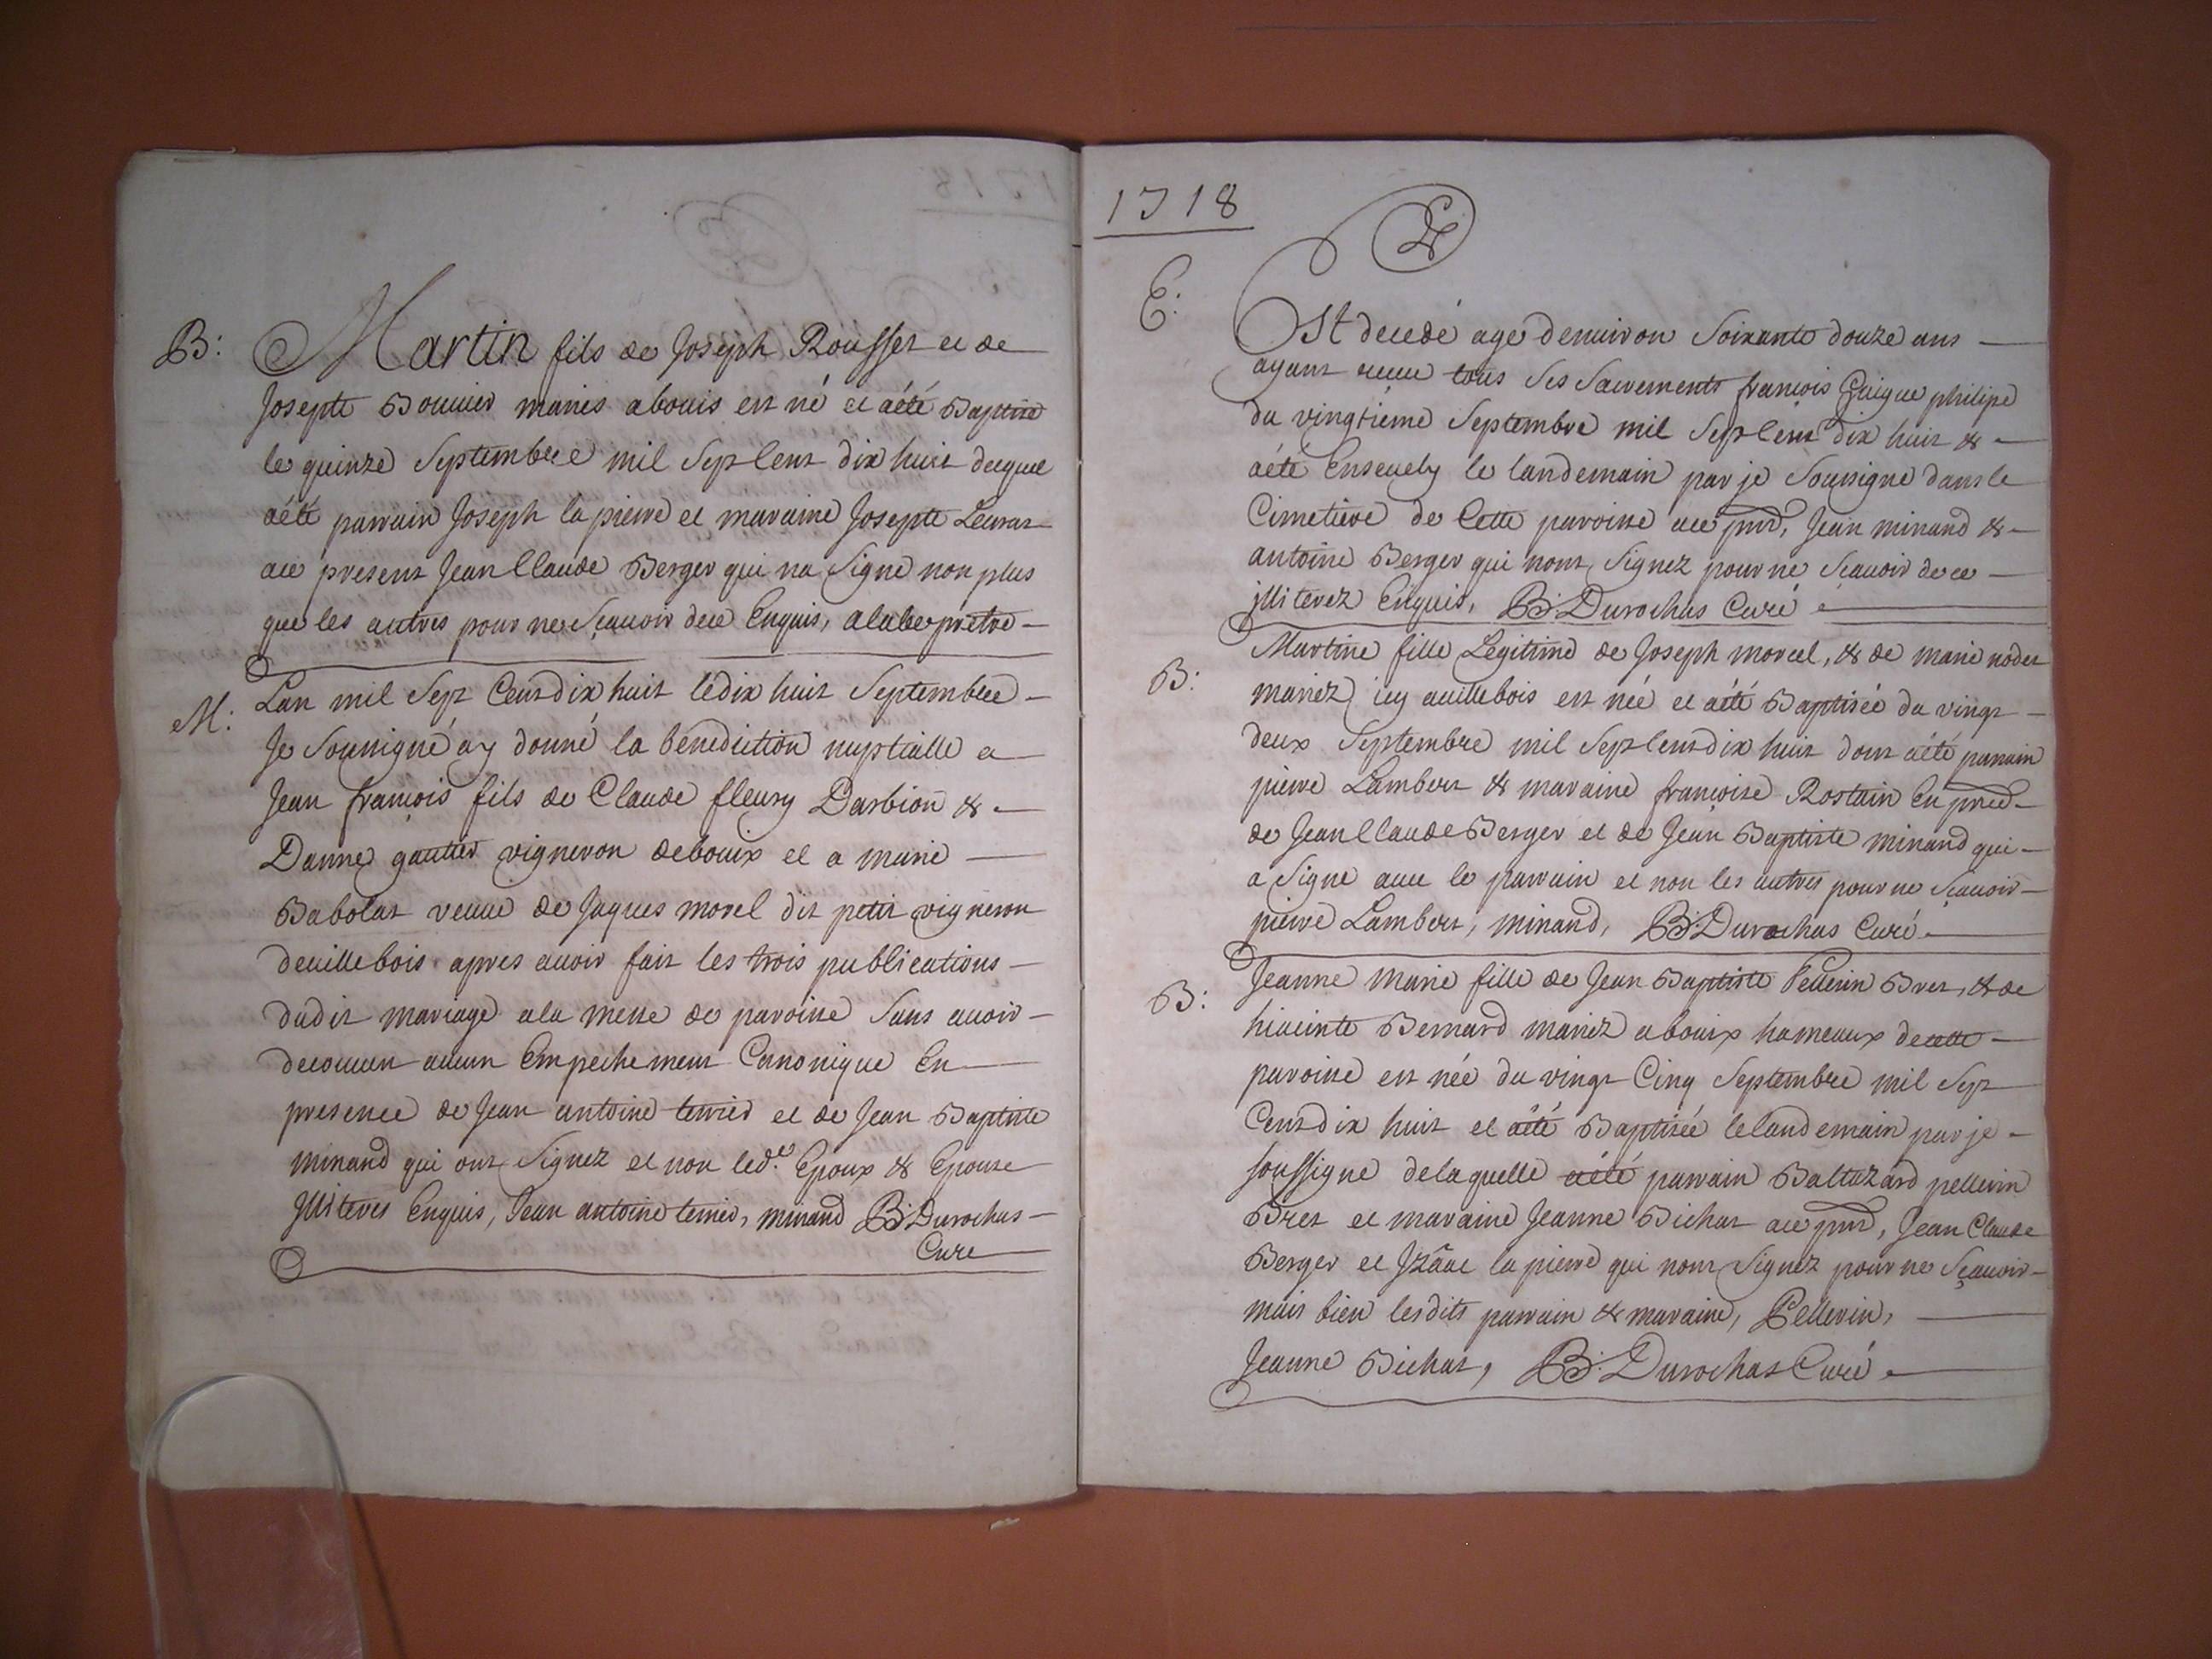 B: Martin fils de Joseph Rousset et de
Josepte Bouuier mariés abouis est né et aété Baptisé
le quinze Septembre mil Sept Cent dix huit duquel
aété parrain Joseph la pierre et maraine Josepte
aue present Jean Claude Berger qui na Signé non plus
que les autres pour ne Sçauoir dece Enquis, prêtre
M: Lan mil Sept Cent dix huit le dix huit Septembre
Je Soussigné ay donné la bénédiction nuptialle a
Jean françois fils de Claude fleury Darbion &
Danne gautier vigneron debouix et a marie
Babolat veuue de Jaques morel dit petit vigneron
deuillebois apres auoir fait les trois publications
dudit mariage ala messe de paroisse Sans auoir
decouuert aucun Empechement Canonique En
presence de Jean antoine terrier et de Jean Baptiste
minand qui ont Signez et non led.es Epoux & Epouse
Illiteres Enquis, Jean antoine terrier, minand B: Durochas
Curé
1718
E: Est decedé agé denuiron Soixante douze ans
ayant receu tous Ses Sacrements françois Guigue philipe
du vingtième Septembre mil Sept Cent dix huit &
aété Enseuely le landemain par je Soussigné dans le
Cimetiere de Cette paroisse aue pnt, Jean minand &
antoine Berger qui nont Signez pour ne Scauoir dece
Illiterez Enquis, B: Durochas Curé
B: Martine fille Légitime de Joseph morcel, & de marie nodet
mariez icy auillebois est née et aété Baptisée du vingt
deux Septembre mil Sept Cent dix huit dont aété parrain
pierre Lambert & maraine françoise Rostain En pnce
de Jean Claude Berger et de Jean Baptiste minand qui
a Signé auec le parrain et non les autres pour ne Sçauoir
pierre Lambert, minand, B: Durochas Curé
B: Jeanne Marie fille de Jean Baptiste Pellerin Bret, & de
hiacinte Bernard mariez abouix hameaux decette
paroisse est née du vingt Cinq Septembre mil Sept
Cent dix huit et aété Baptisée le landemain par je
soussigné delaquelle aété parrain Baltazard pellerin
Bret et maraine Jeanne Bichat aue pnt, Jean Claude
Berger et Izâac la pierre qui nont Signez pour ne Sçauoir
mais bien lesdits parrain & maraine, Pellerin,
Jeanne Bichat, B: Durochas Curé